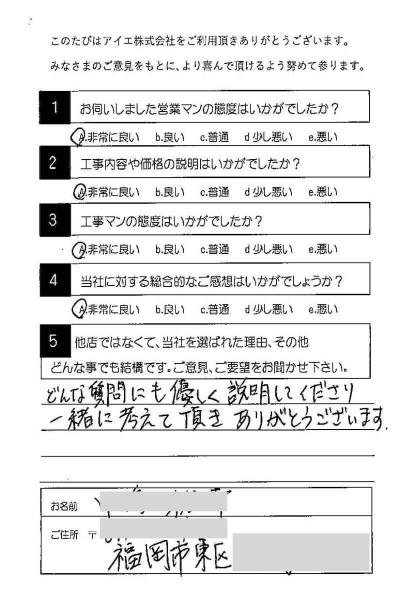 このたびはアイエ株式会社をご利用頂きありがとうございます。
みなさまのご意見をもとに、より喜んで頂けるよう努めて参ります。
1 お伺いしました営業マンの態度はいかがでしたか?
A.非常に良い b.良い c.普通 d 少し悪い e.悪い
2 工事内容や価格の説明はいかがでしたか?
A.非常に良い b.良い c.普通 d 少し悪い e.悪い
3 工事マンの態度はいかがでしたか?
A.非常に良い b.良い c.普通 d 少し悪い e.悪い
4 当社に対する総合的なご感想はいかがでしょうか?
A.非常に良い b.良い c.普通 d 少し悪い e.悪い
5 他店ではなくて、当社を選ばれた理由、その他
どんな事でも結構です。ご意見、ご要望をお聞かせ下さい。
どんな質問にも優しく説明してくださり
一緒に考えて頂きありがとうございます。
お名前
ご住所 〒
福岡市東区